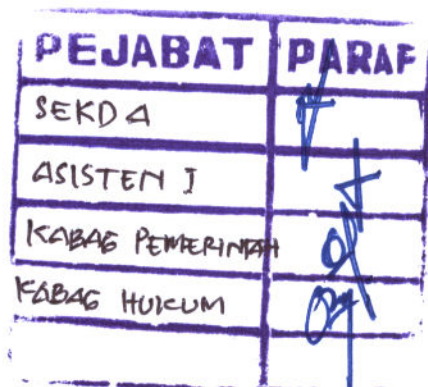 PEJABAT PARAF
SEKDA
ASISTEN I
KABAG PEMERINTAH
KABAG HUKUM